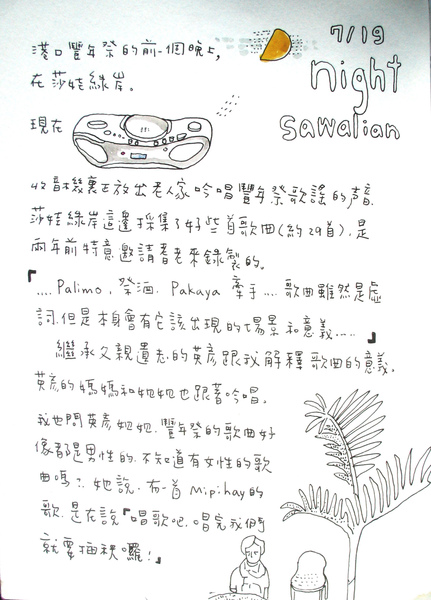 7/19
night
sawalian
港口豐年祭的前一個晚上,
在莎娃綠岸。
現在
收音機裏正放出老人家吟唱豐年祭歌謠的声音.
莎娃綠岸這邊採集了好些首歌曲(約29首),是
兩年前特意邀請耆老來錄製的。
「.... Palimo, 祭酒. Pakaya 牽手.... 歌曲雖然是虛
詞.但是本身會有它該出現的場景和意義.....」
繼承父親遺志的英彥跟我解釋歌曲的意義。
英彥的媽媽和她她也跟著吟唱。
我也問英彥她她.豐年祭的歌曲好
像都是男性的.不知道有女性的歌
曲嗎?.她說.有一首 mipihay的
歌.是在說「唱歌吧.唱完我們
就要抽